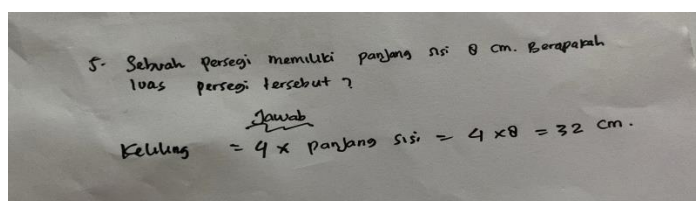 5. Sebuah persegi memiliki panjang sisi 8 cm. Berapakah
luas persegi tersebut ?
Jawab
Keliling = 4 x panjang sisi = 4 x 8 = 32 cm.